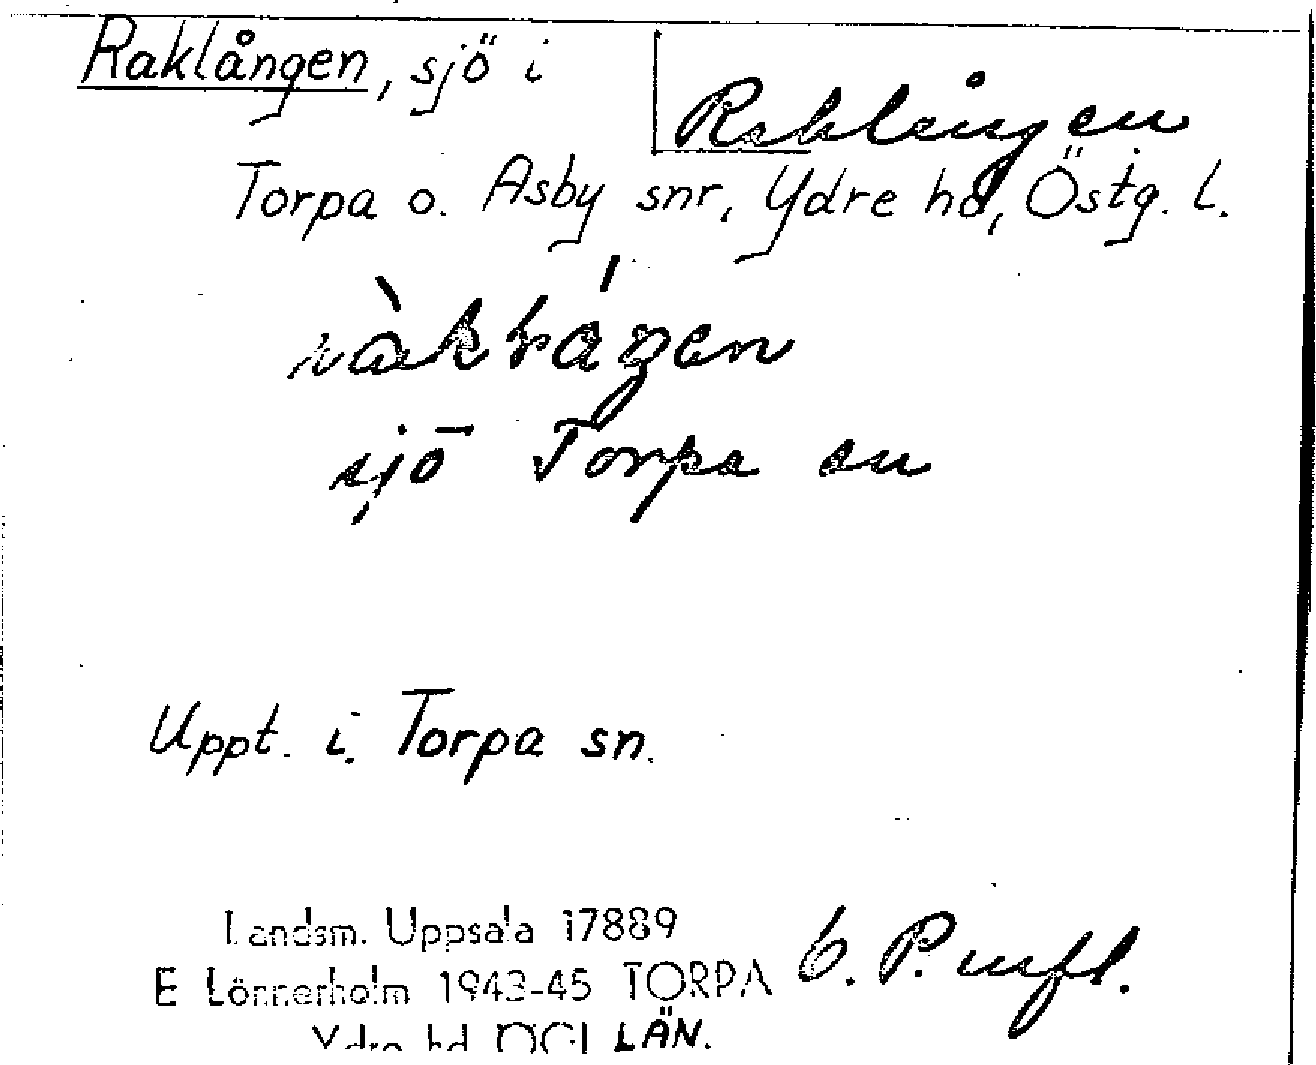 Raklången, sjö i
Raklången
Torpa o. Asby snr, Ydre hd, Östg. l.
sjö Torpa sn
Uppt. i Torpa sn.
Landsm. Uppsala 17889
E Lönnerholm 1943-45 TORPA
6. P. mfl.
Ydre hd ÖGL LÄN.